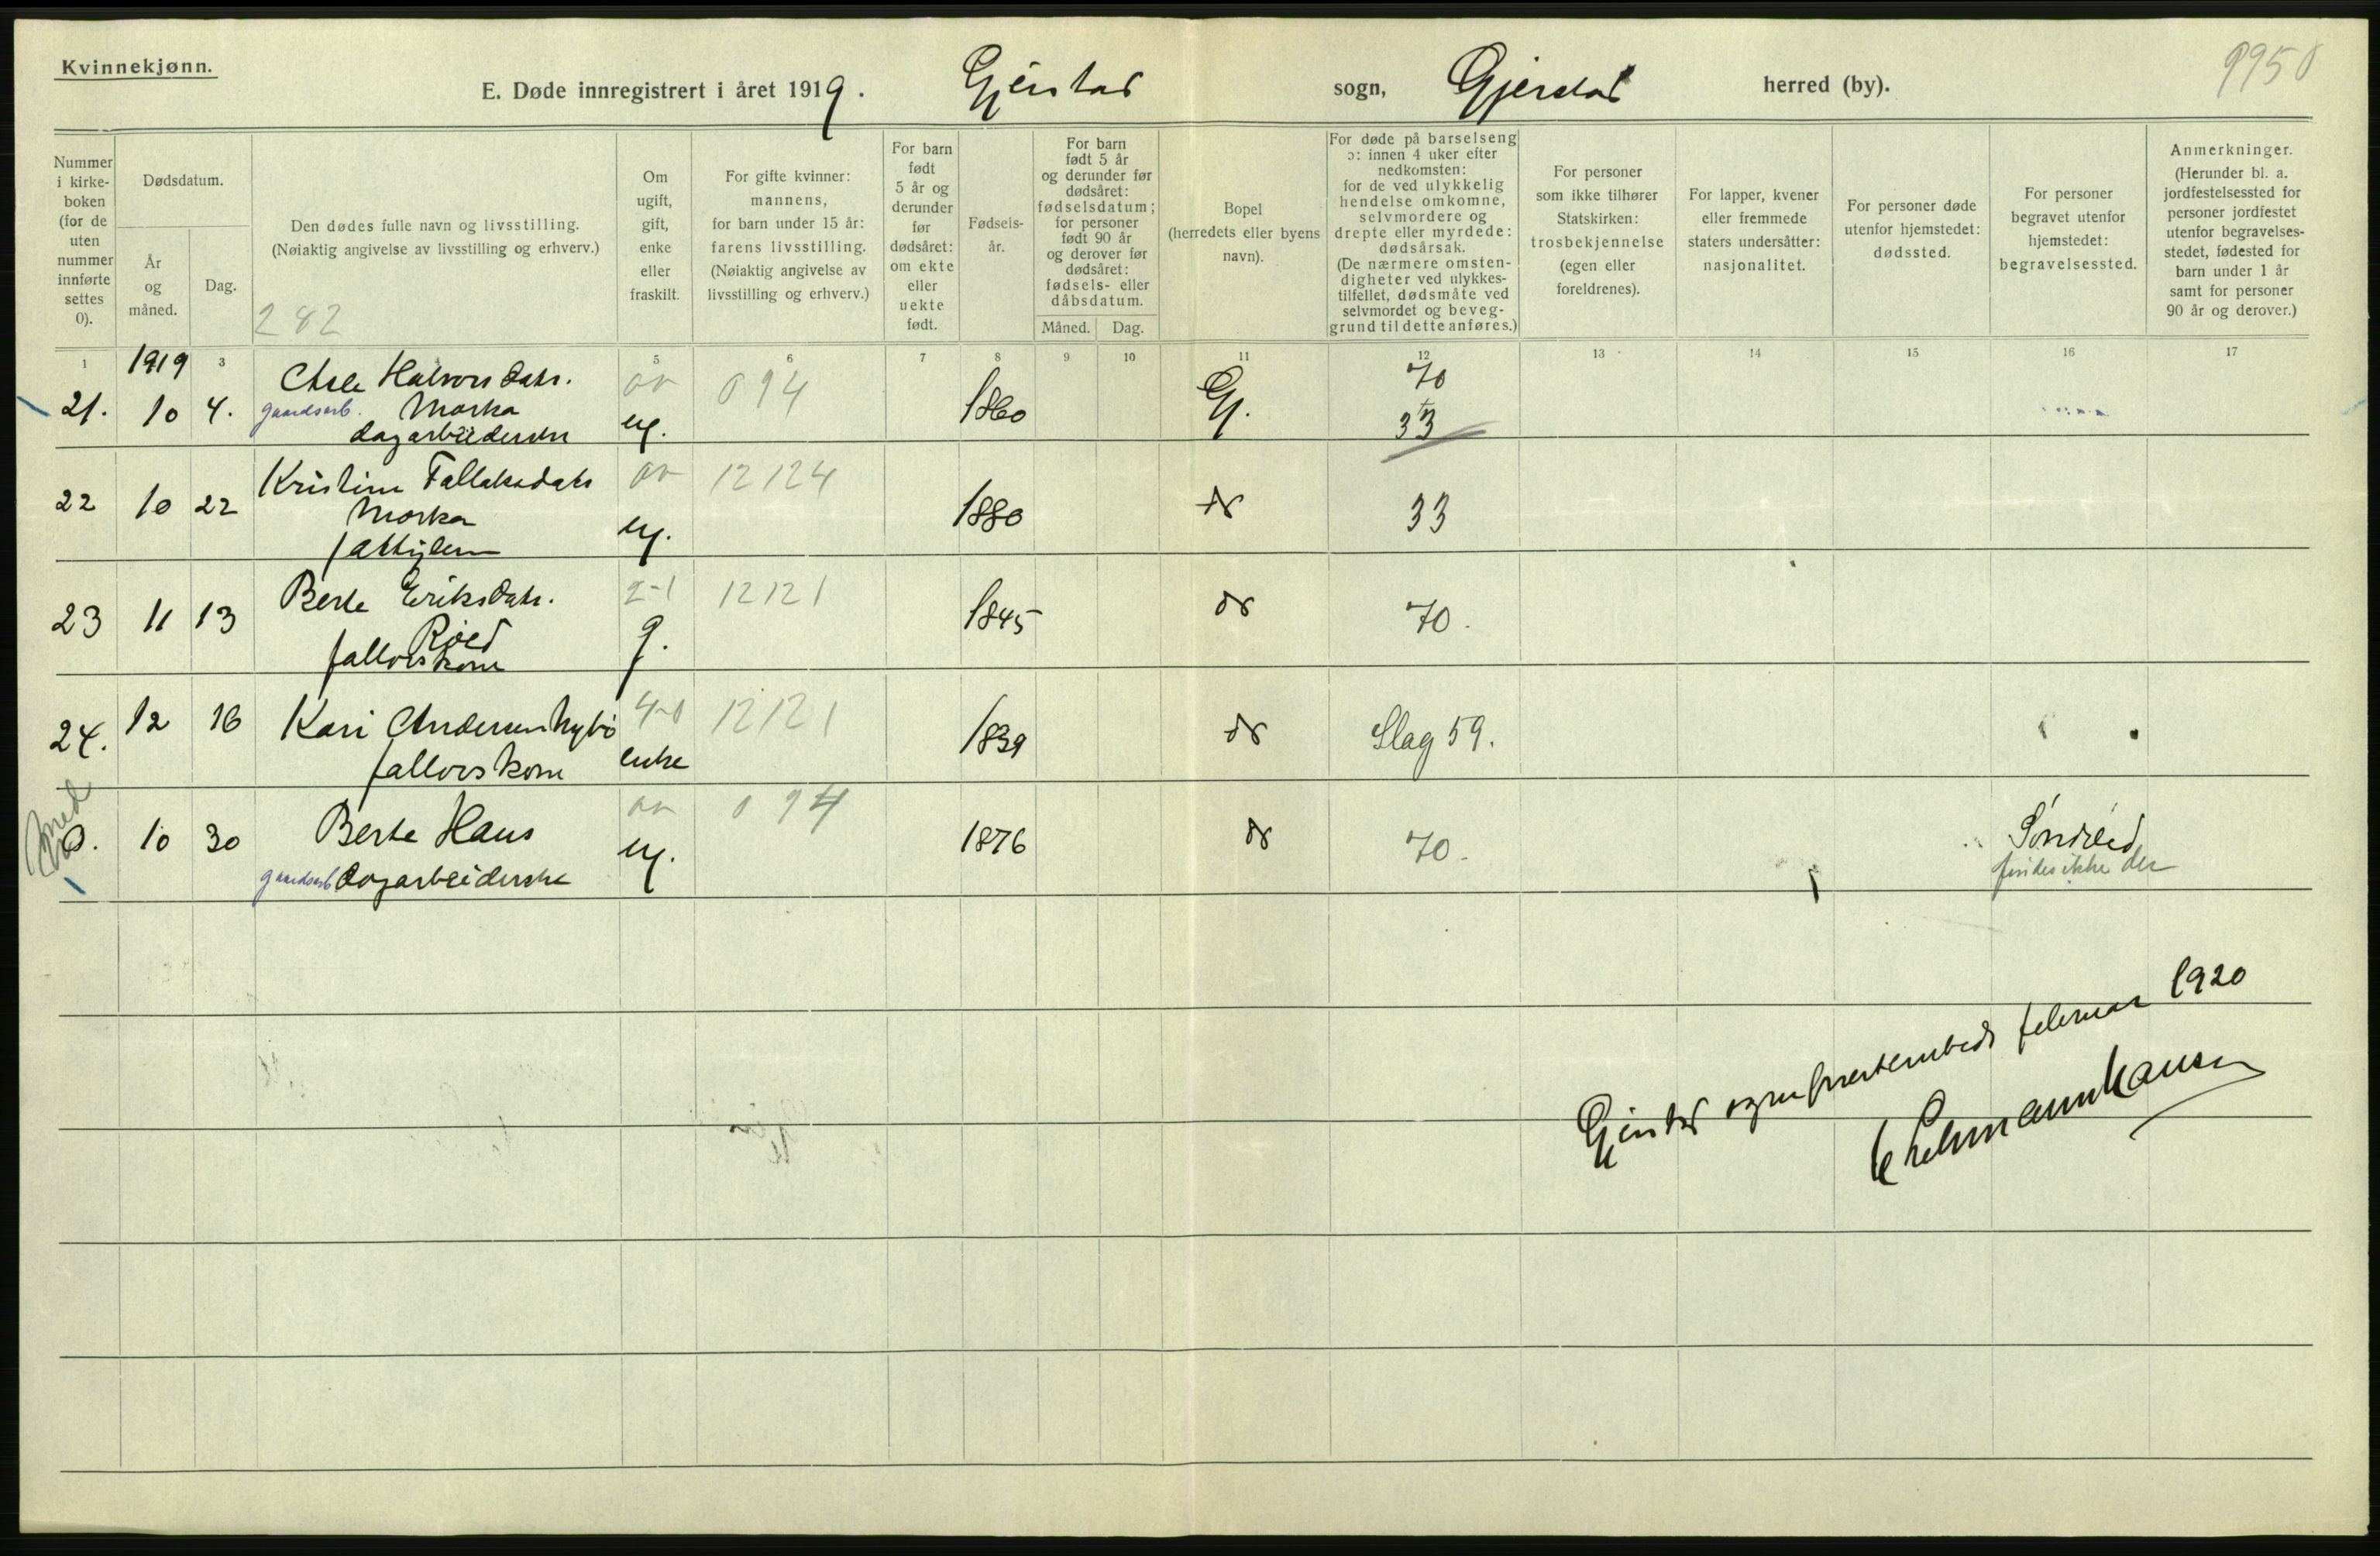 Kvinnekjønn.
E. Døde innregistrert i året 1919. Gjerstad sogn, Gjerstad herred (by).
9950
Nummer i kirke-boken (for de uten nummer innførte settes 0).
Dødsdatum.
År og måned.
Dag.
Den dødes fulle navn og livsstilling.
(Nøiaktig angivelse av livsstilling og erhverv.)
282
Om ugift, gift, enke eller fraskilt.
For gifte kvinner: mannens, for barn under 15 år: farens livsstilling. (Nøiaktig angivelse av livsstilling og erhverv.)
For barn født 5 år og derunder før dødsåret: om ekte eller uekte født.
Fødsels-år.
For barn født 5 år og derunder før dødsåret: fødselsdatum; for personer født 90 år og derover før dødsåret: fødsels- eller dåbsdatum.
Måned. Dag.
Bopel (herredets eller byens navn).
For døde på barselseng ɔ: innen 4 uker efter nedkomsten: for de ved ulykkelig hendelse omkomne, selvmordere og drepte eller myrdede: dødsårsak. (De nærmere omsten-digheter ved ulykkes-tilfellet, dødsmåte ved selvmordet og beveg-grund til dette anføres.)
For personer som ikke tilhører Statskirken: trosbekjennelse (egen eller foreldrenes).
For lapper, kvener eller fremmede staters undersåtter: nasjonalitet.
For personer døde utenfor hjemstedet: dødssted.
For personer begravet utenfor hjemstedet: begravelsessted.
Anmerkninger. (Herunder bl. a. jordfestelsessted for personer jordfestet utenfor begravelses-stedet, fødested for barn under 1 år samt for personer 90 år og derover.)
1 3 5 6 7 8 9 10 11 12 13 14 15 16 17
1919
21. 10 4. Halvorsdatr. 094 1860 Gj. 70
gaardsarb. Morka ug. 33
dagarbeiderske
22 10 22 Kristine 12124 1880 33
Morka ug.
23 11 13 Berte Eriksdatr. 2-1 12121 1845 70.
Røed g.
24. 12 16 Kari Andersen 4-0 12121 1839 Slag 59.
enke
0. 10 30 Berte Haus 094 1876 70. Søndeled
gaardsarb dagarbeiderske ug. findes ikke der
Gjerstad sogneprestembede februar 1920